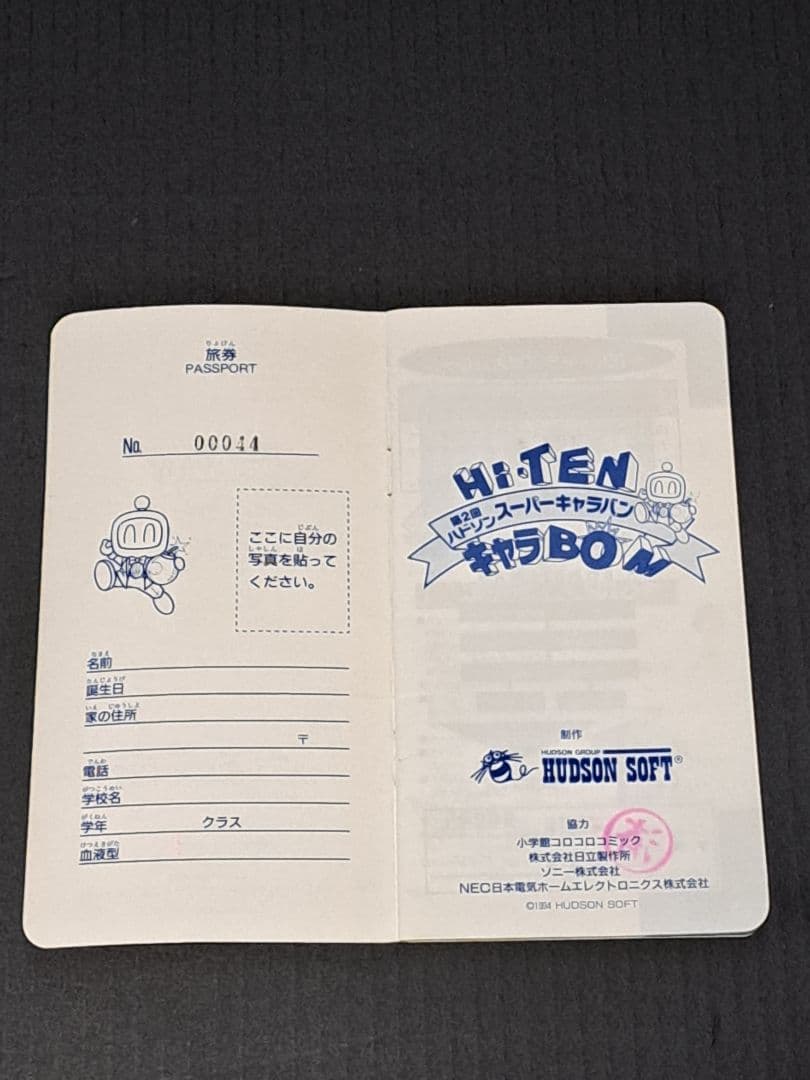 りょけん
旅券
PASSPORT
No. 00044
じぶん
ここに自分の
しゃしん は
写真を貼って
ください。
なまえ
名前
たんじょうび
誕生日
いえ じゅうしょ
家の住所
〒
でんわ
電話
がっこうめい
学校名
がくねん
学年 クラス
けつえきがた
血液型
Hi-TEN
第2回
ハドソンスーパーキャラバン
キャラBOM
制作
HUDSON GROUP
HUDSON SOFT®
協力
小学館コロコロコミック
株式会社日立製作所
ソニー株式会社
NEC日本電気ホームエレクトロニクス株式会社
©1994 HUDSON SOFT